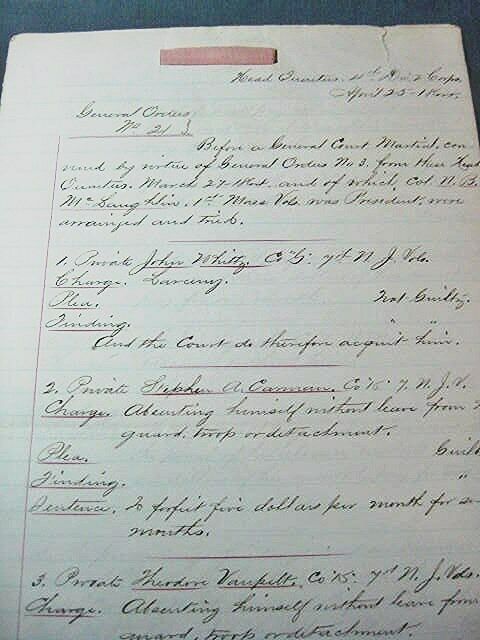 Head Quarters 4th Div. 2 Corps
April 25 1864.
General Orders
No 21
Before a General Court Martial, con
vened by virtue of General Orders No 3. from these Head
Quarters. March 27 1864. and of which, Col. N. B.
McLaughlin. 1st Mass Vols. was President, were
arraigned and tried.
1. Private John Whitty Co "G" 7th N J Vols.
Charge. Larceny.
Plea. Not Guilty.
Finding. " "
And the Court do therefore acquit him.
2. Private Stephen A. Carman, Co "K" 7. N. J. V.
Charge. Absenting himself without leave from
guard, troop or detachment.
Plea. Guil
Finding. "
Sentence. To forfeit five dollars per month for
months.
3. Private Theodore Vanpelt, Co "K" 7th N. J. Vols.
Charge. Absenting himself without leave from
guard, troop or detachment